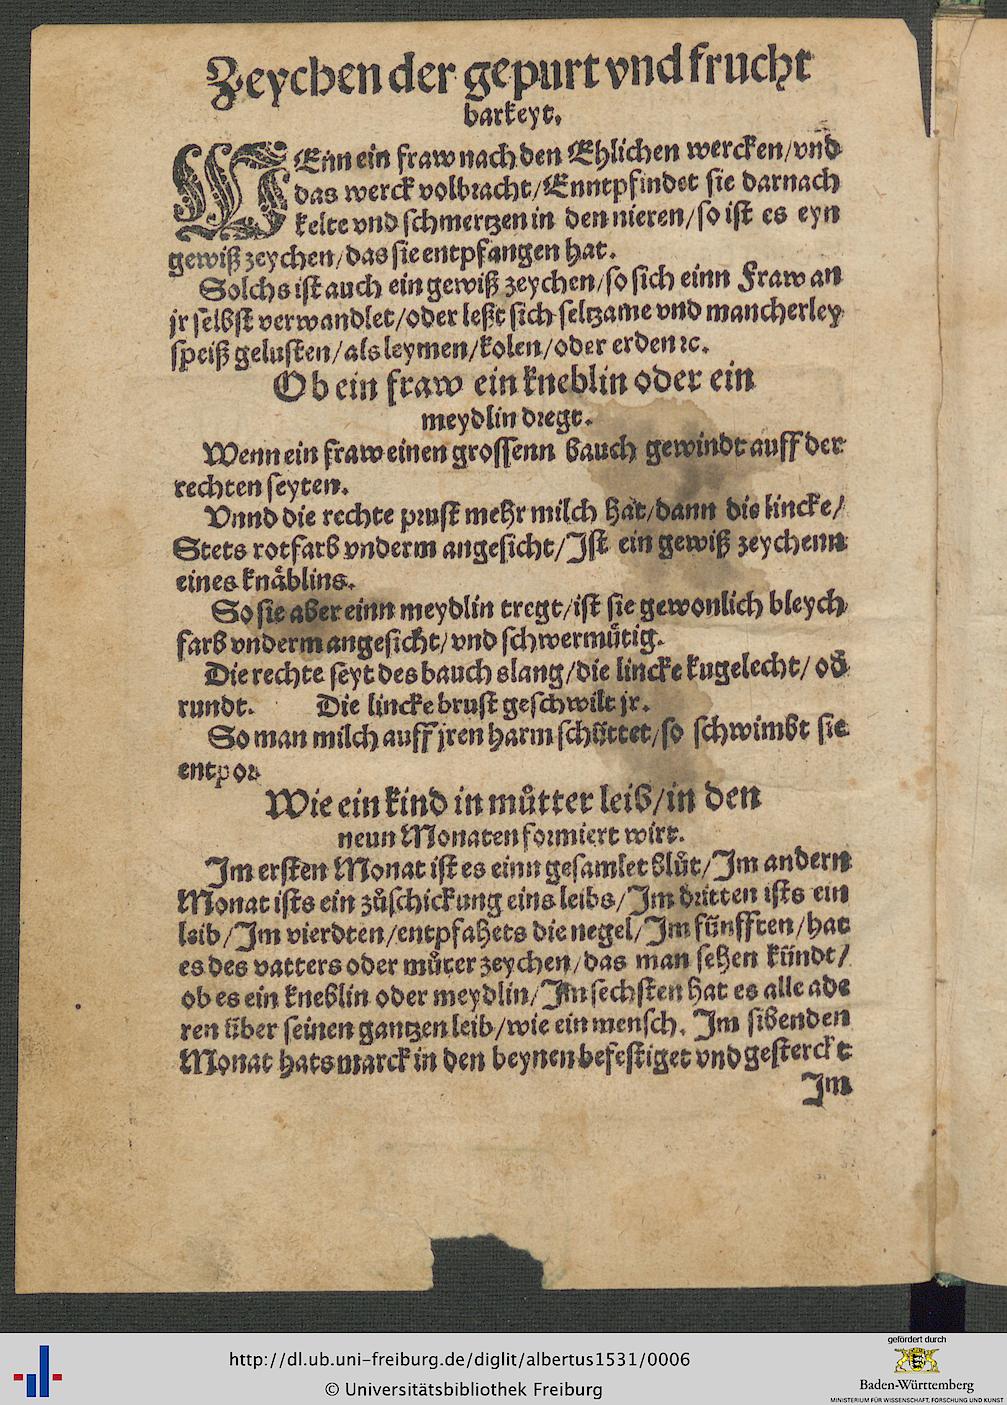 Zeychen der gepurt vnd frucht
barkeyt.
WEnn ein fraw nach den Ehlichen wercken/vnd
das werck volbracht/Enntpfindet sie darnach
kelte vnd schmertzen in den nieren/so ist es eyn
gewiß zeychen/das sie entpfangen hat.
Solchs ist auch ein gewiß zeychen/so sich einn Fraw an
jr selbst verwandlet/oder leßt sich seltzame vnd mancherley
speiß gelusten/als leymen/kolen/oder erden ⁊c.
Ob ein fraw ein kneblin oder ein
meydlin dregt.
Wenn ein fraw einen grossenn bauch gewindt auff der
rechten seyten.
Vnnd die rechte prust mehr milch hat/dann die lincke/
Stets rotfarb vnderm angesicht/Ist ein gewiß zeychenn
eines knäblins.
So sie aber einn meydlin tregt/ist sie gewonlich bleych
farb vnderm angesicht/vnd schwermütig.
Die rechte seyt des bauchs lang/die lincke kugelecht/ od̄
rundt. Die lincke brust geschwilt jr.
So man milch auff jren harm schüttet/so schwimbt sie
entpor
Wie ein kind in můtter leib/in den
neun Monaten formiert wirt.
Im ersten Monat ist es einn gesamlet blůt/Im andern
Monat ists ein zůschickung eins leibs/Im dritten ists ein
leib/Im vierdten/entpfahets die negel/Im fünfften/hat
es des vatters oder můter zeychen/das man sehen kündt/
ob es ein kneblin oder meydlin/Im sechsten hat es alle ade
ren über seinen gantzen leib/wie ein mensch. Im sibenden
Monat hats marck in den beynen befestiget vnd gesterckt
Im
http://dl.ub.uni-freiburg.de/diglit/albertus1531/0006
© Universitätsbibliothek Freiburg
gefördert durch
Baden-Württemberg
MINISTERIUM FÜR WISSENSCHAFT, FORSCHUNG UND KUNST